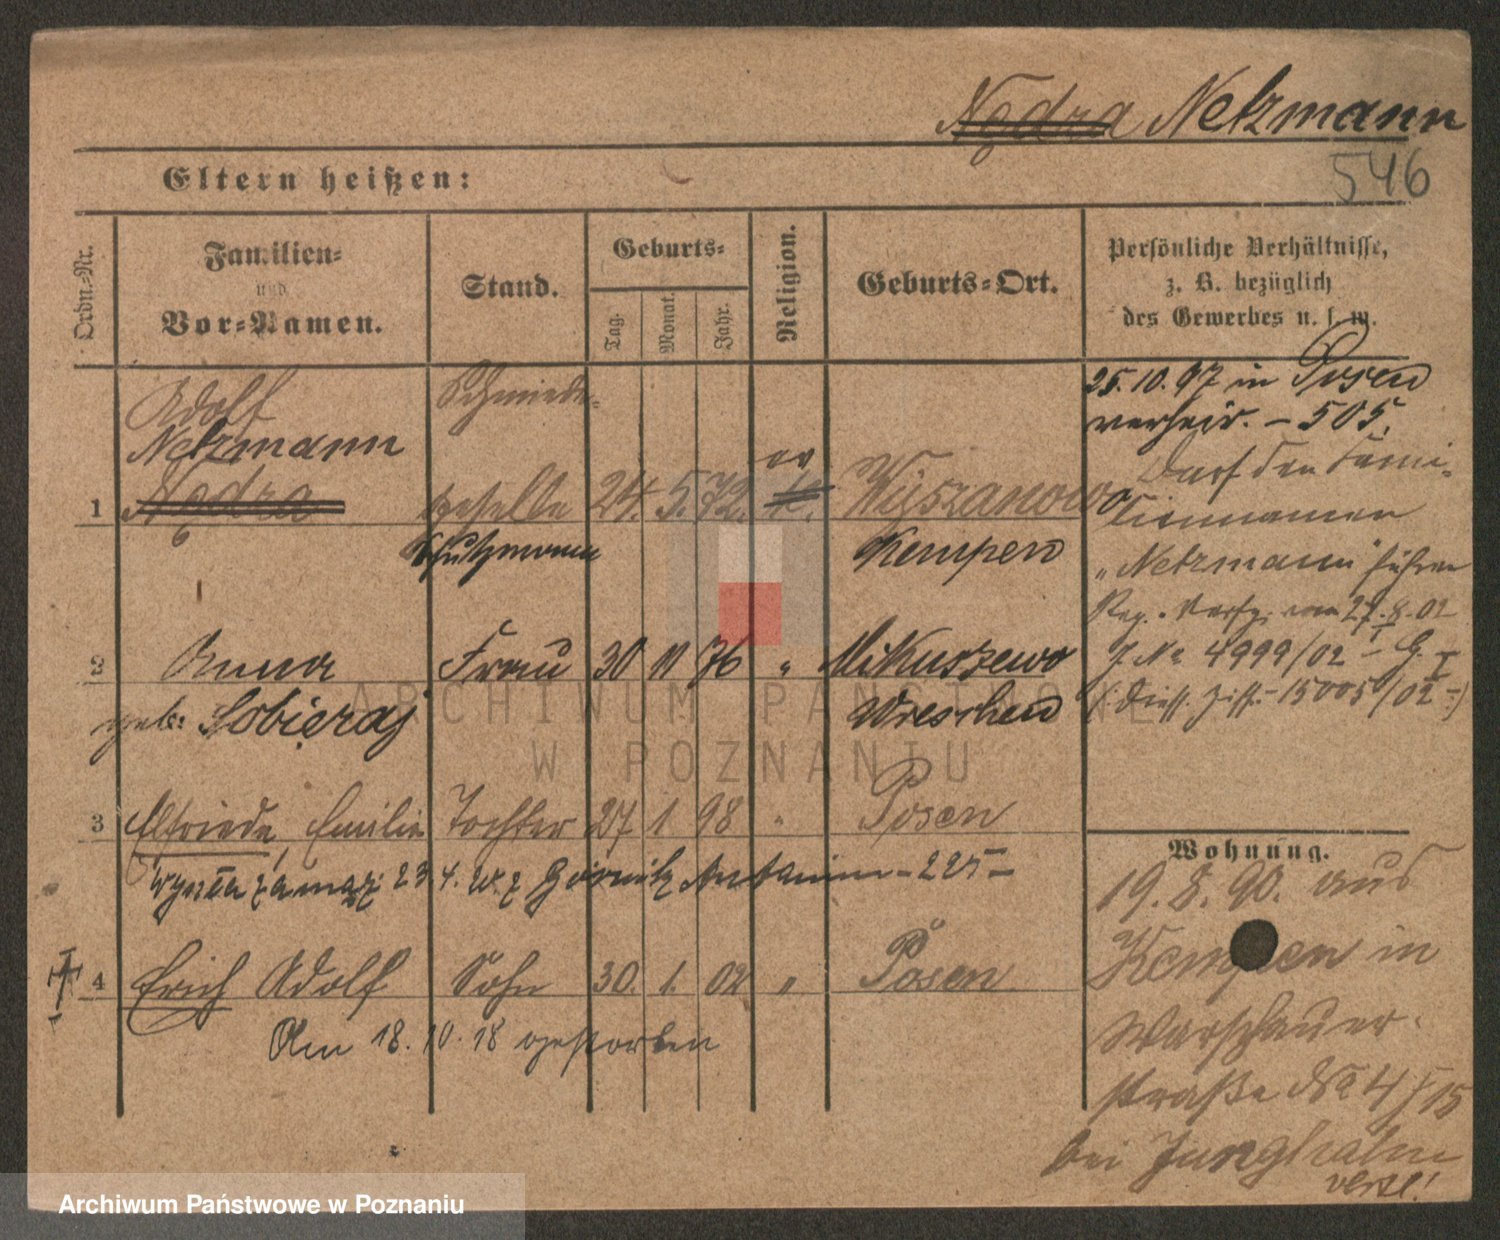 Nędza Netzmann
546
Eltern heißen:
Ordn.-Nr.
Familien-
und
Vor-Namen.
Stand.
Geburts-
Tag.
Monat.
Jahr.
Religion.
Geburts-Ort.
Persönliche Verhältnisse,
z. B. bezüglich
des Gewerbes u. s. w.
1
Adolf
Netzmann
Nędza
Schmiede-
geselle
Schutzmann
24. 5. 72.
ev.
k.
Wyszanowo
Kempen
25.10.97 in Posen
verheir. – 505.
Darf den Fami-
liennamen
"Netzmann" führen
Reg. Verfg. vom 27.8.02
J. No 4999/02 – G. I
15005/02
2
Anna
geb: Sobieraj
Frau
30 11 76
"
Mikuszewo
Wreschen
3
Elfriede, Emilie
Tochter
27 1 98
"
Posen
wyszła zamąż 23 4. 225
4
Erich Adolf
Sohn
30. 1. 02
"
Posen
Am 18.10.18 gestorben
Wohnung.
19.8.90. aus
Kempen in
Warschauer-
straße No 4
bei Junghahn
ARCHIWUM PAŃSTWOWE
W POZNANIU
Archiwum Państwowe w Poznaniu